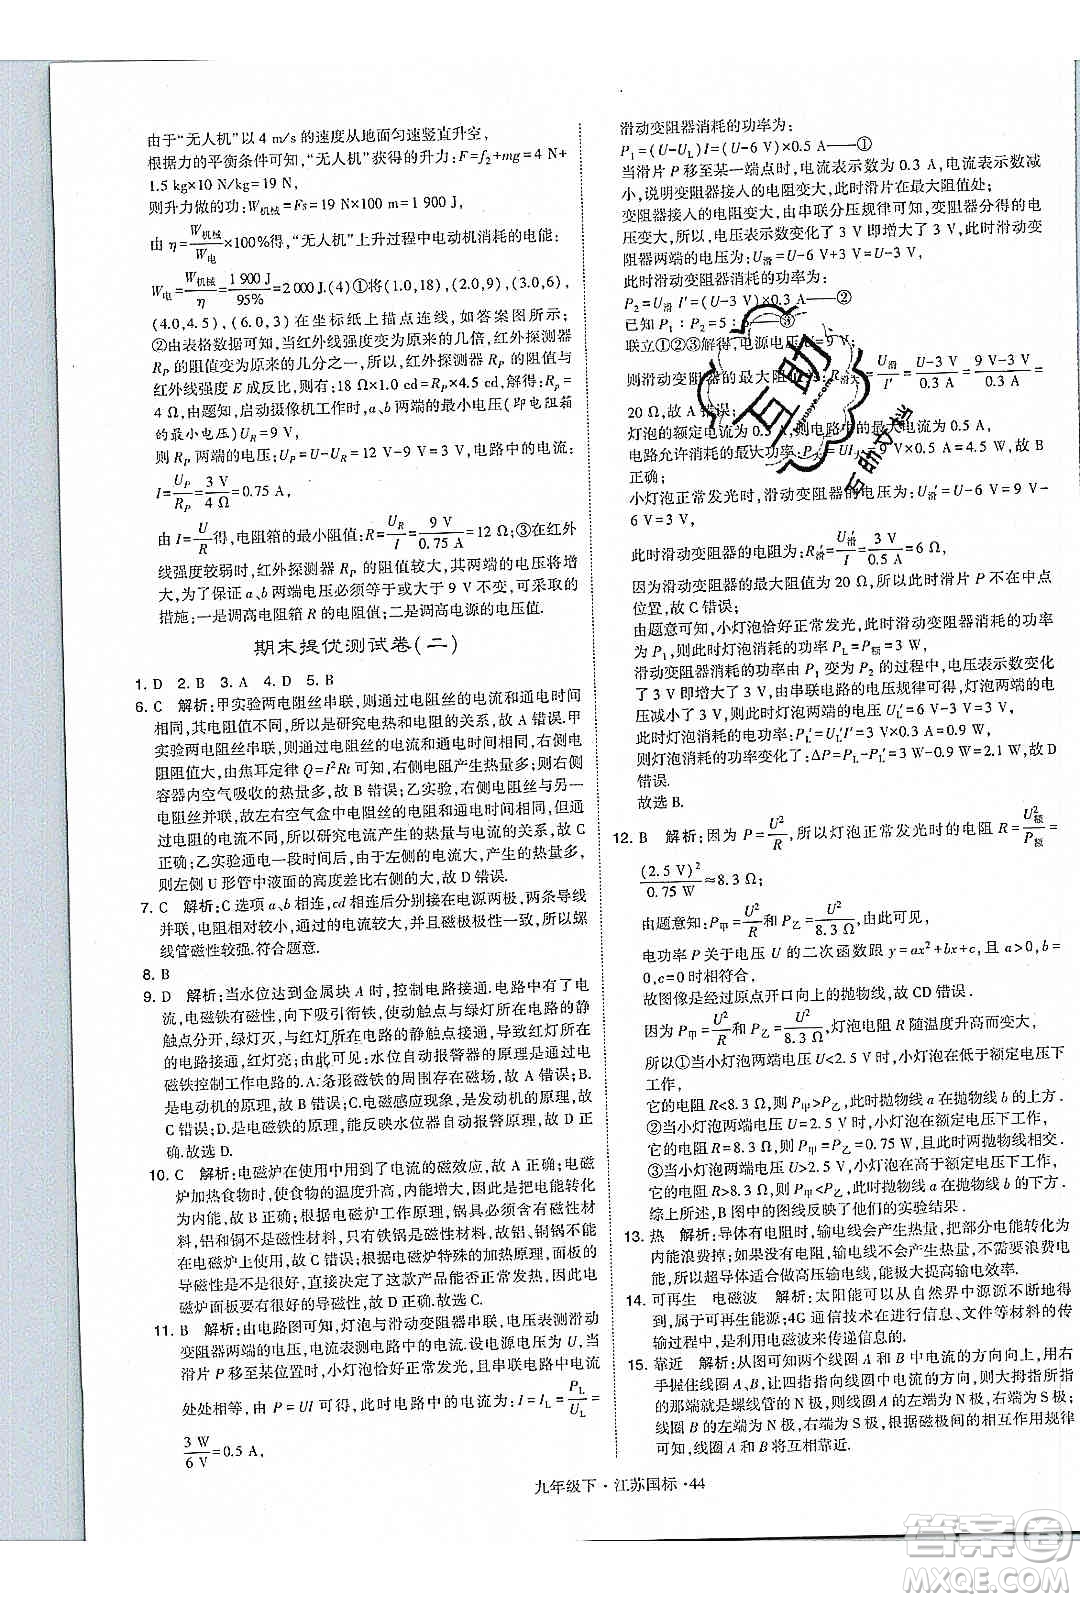 由于“无人机”以 4 m/s 的速度从地面匀速竖直升空,
根据力的平衡条件可知,“无人机”获得的升力:F=f₂+mg=4 N+
1.5 kg×10 N/kg=19 N,
则升力做的功:W机械=Fs=19 N×100 m=1 900 J,
由 η=W机械/W电×100%得,“无人机”上升过程中电动机消耗的电能:
W电=W机械/η=1 900 J/95%=2 000 J.(4)①将(1.0,18)、(2.0,9)、
(4.0,4.5)、(6.0,3)在坐标纸上描点连线,如答案图所示;
②由表格数据可知,当红外线强度变为原来的几倍,红外探测器
R_P 的阻值变为原来的几分之一,所以,红外探测器 R_P 的阻值与
红外线强度 E 成反比,则有:18 Ω×1.0 cd=R_P×4.5 cd,解得:R_P=
4 Ω,由题知,启动摄像机工作时,a、b 两端的最小电压(即电阻箱
的最小电压)U_R=9 V,
则 R_P 两端的电压:U_P=U-U_R=12 V-9 V=3 V,电路中的电流:
I=U_P/R_P=3 V/4 Ω=0.75 A,
由 I=U/R得,电阻箱的最小阻值:R=U_R/I=9 V/0.75 A=12 Ω;③在红外
线强度较低时,红外探测器 R_P 的阻值较大,其两端的电压较大,
为了保证 a、b 两端电压必须等于或大于 9 V 不变,可采取的
措施:一是调高电阻箱 R 的电阻值;二是调高电源的电压值.
期末提优测试卷(二)
1. D 2. B 3. A 4. D 5. B
6. C 解析:甲实验两电阻丝串联,则通过电阻丝的电流和通电时间
相同,其电阻值不同,所以是研究电热和电阻的关系,故 A 错误.甲
实验两电阻丝串联,则通过电阻丝的电流和通电时间相同,右侧电
阻阻值大,由焦耳定律 Q=I²Rt 可知,右侧电阻产生热量多,右侧
容器内空气吸收的热量多,故 B 错误;乙实验中,两电阻丝
并联,故左右空气盒中电阻丝的电阻和通电时间相同,通过电阻丝
的电流不同,所以研究电流产生的热量与电流的关系,故 C
正确;乙实验通电一段时间后,由于左侧的电流大,产生的热量多,
则左侧 U 形管中液面的高度差比右侧的大,故 D 错误.
7. C 解析:C 选项 a、b 相连,cd相连后分别接电源两极,两条导线
并联,电阻最小,通过的电流较大,并且磁极极性一致,所以螺
线管磁性较强.符合题意.
8. B
9. D 解析:当水位达到金属块 A 时,控制电路接通,电路中有了电
流,电磁铁有磁性,向下吸引衔铁,使动触点与绿灯所在电路的静
触点分开,绿灯灭,与红灯所在电路的静触点接通,导致红灯所在
的电路接通,红灯亮;由此可见:水位自动报警器的原理是通过电
磁铁控制工作电路的.A.条形磁铁的周围存在磁场,故 A 错误;B.
是电动机的原理,故 B 错误;C.电磁感应现象,是发动机的原理,故
C 错误;D.是电磁铁的原理,能反映水位器自动报警原理,故 D 正
确.故选 D.
10. C 解析:电磁炉在使用中用到了电流的磁效应,故 A 正确;电磁
炉加热食物时,使食物的温度升高,内能增大,是把电能转化
为内能,故 B 正确;根据电磁炉工作原理,锅具必须含有磁性材
料,铝和铜锅不含磁性材料,而铁锅是磁性材料,故铝、铜锅不能
在电磁炉上使用,故 C 错误;根据电磁炉特殊的加热原理,面板的
导磁性是不是很好,直接影响到了磁场的分布,从而影响加热,故
电磁炉面板要有很强的导磁性,故 D 正确.故选 C.
11. B 解析:由电路图可知,灯泡与滑动变阻器串联,电压表测滑动
变阻器两端的电压,电流表测电路中的电流.设电源电压为 U,当
滑片 P 移至某位置时,小灯泡恰好正常发光,且串联电路中电流
处处相等,由 P=UI 可得,此时电路中的电流为:I=I_L=P_L/U_L=
3 W/6 V=0.5 A,
滑动变阻器消耗的功率为:
P₁=(U-U_L)I=(U-6 V)×0.5 A——①
当滑片 P 移至某一端点时,电流表示数为 0.3 A,电流表示数减
小,说明变阻器接入的电阻变大,此时滑片在最大阻值处;
变阻器接入的电阻变大,由串联分压规律可知,变阻器分得的电
压变大,所以,电压表示数变化了 3 V 即增大了 3 V,
则此时滑动变阻器两端的电压为:U滑=U-6 V+3 V=U-3 V,
此时滑动变阻器消耗的功率为:
P₂=U滑 I′=(U-3 V)×0.3 A——②
已知 P₁∶P₂=5∶——③
联立①②③解得,电源电压 U=9 V,
则滑动变阻器的最大阻值为:R滑大=U滑/I′=U-3 V/0.3 A=9 V-3 V/0.3 A=
20 Ω,故 A 错误;
灯泡的额定电流为0.5 A,则电路中的最大电流为 0.5 A,
电路允许消耗的最大功率为:P大=UI大=9 V×0.5 A=4.5 W,故 B
正确;
小灯泡正常发光时,滑动变阻器消耗的电压为:U滑′=U-6 V=9 V-
6 V=3 V,
此时滑动变阻器的电阻为:R滑′=U滑′/I=3 V/0.5 A=6 Ω,
因为滑动变阻器的最大阻值为 20 Ω,所以此时滑片 P 不在中点
位置,故 C 错误;
由题意可知,小灯泡恰好正常发光,此时滑动变阻器消耗的功率
为 P₁,则小灯泡消耗的功率 P_L=P额=3 W,
滑动变阻器消耗的电功率由 P₁ 变为 P₂ 的过程中,电压表示数
变化了 3 V,即增大了 3 V,由串联电路的规律可知,灯泡两端的电
压减小了 3 V,则此时灯泡两端的电压为:U_L′=6 V-3 V=3 V,
此时灯泡消耗的电功率:P_L′=U_L′I′=3 V×0.3 A=0.9 W,
灯泡消耗的功率变化了:ΔP=P_L-P_L′=3 W-0.9 W=2.1 W,故 D
错误.
故选 B.
12. B 解析:因为 P=U²/R,所以灯泡正常发光时的电阻 R=U额²/P额=
(2.5 V)²/0.75 W≈8.3 Ω;
由题意知:P甲=U²/R和 P乙=U²/8.3 Ω,由此可见,
电功率 P 关于电压 U 的二次函数跟 y=ax²+bx+c,且 a>0,b=
0,c=0 时相符合.
故图像是经过原点开口向上的抛物线,故 CD 错误.
因为 P甲=U²/R和 P乙=U²/8.3 Ω,灯泡电阻 R 随温度升高而变大,
所以①当小灯泡两端电压 U<2.5 V 时,小灯泡在低于额定电压下
工作,
它的电阻 R<8.3 Ω,则 P甲>P乙,此时抛物线 a 在抛物线 b 的上方.
②当小灯泡两端电压 U=2.5 V 时,小灯泡在额定电压下工作,
它的电阻 R=8.3 Ω,则 P甲=P乙=0.75 W,此时两抛物线相交.
③当小灯泡两端电压 U>2.5 V 时,小灯泡在高于额定电压下工作,
它的电阻 R>8.3 Ω,则 P甲<P乙,此时抛物线 a 在抛物线 b 的下方.
综上所述,B 图中的图线反映了他们的实验结果.
13. 热 解析:导体有电阻时,输电线会产生热量,把部分电能转化为
内能浪费掉;如果没有电阻,输电线不会产生热量,不需要浪费电
能,所以超导体适合做高压输电线,能极大提高输电效率.
14. 可再生 电磁波 解析:太阳能可以从自然界中源源不断地得
到,属于可再生能源;4G 通信技术在进行信息、文件等材料的传
输过程中,是利用电磁波来传递信息的.
15. 靠近 解析:从图可知两个线圈 A 和 B 中电流的方向向上,用右
手握住线圈 A 和 B,让四指指向线圈中电流的方向,则大拇指所指
的那端就是螺线管的 N 极,线圈 A 的左端为 N 极,右端为 S 极;
线圈 B 的左端为 N 极,右端为 S 极,根据磁极间的相互作用规律
可知,线圈 A 和 B 将互相靠近.
九年级下·江苏国标·44
互助
互助文档
答案圈
MXQE.COM